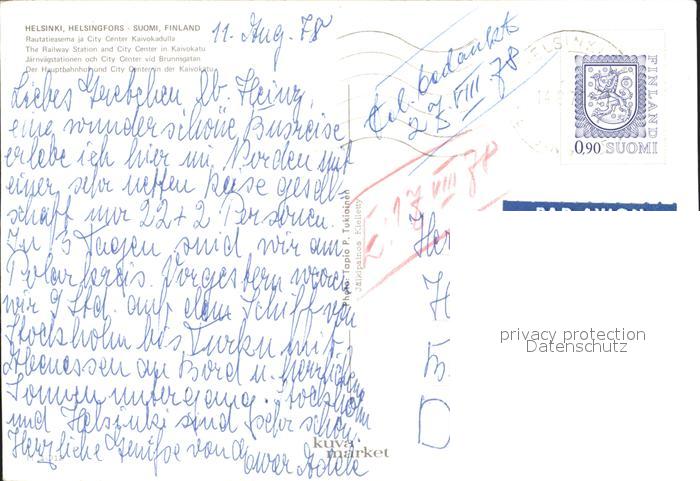 HELSINKI, HELSINGFORS - SUOMI, FINLAND
Rautatieasema ja City Center Kaivokadulla
The Railway Station and City Center in Kaivokatu
Järnvägstationen och City Center vid Brunnsgatan
Der Hauptbahnhof und City Center in der Kaivokatu
11. Aug. 78
Liebes Gretchen, lb. Heinz,
eine wunderschöne Busreise
erlebe ich hier im Norden mit
einer sehr netten Reisegesell-
schaft nur 22+2 Personen.
In 3 Tagen sind wir am
Polarkreis. Vorgestern waren
wir 9 Std. auf dem Schiff von
Stockholm bis Turku mit
Abendessen an Bord u. herrlichem
Sonnenuntergang. Stockholm
und Helsinki sind sehr schön.
Herzliche Grüße von
Eurer Adele
tel. bedankt
VIII. 78
E. 17. VIII 78
Photo: Tapio P. Tukiainen
FINLAND
0,90 SUOMI
PAR AVION
privacy protection
Datenschutz
kuva
market